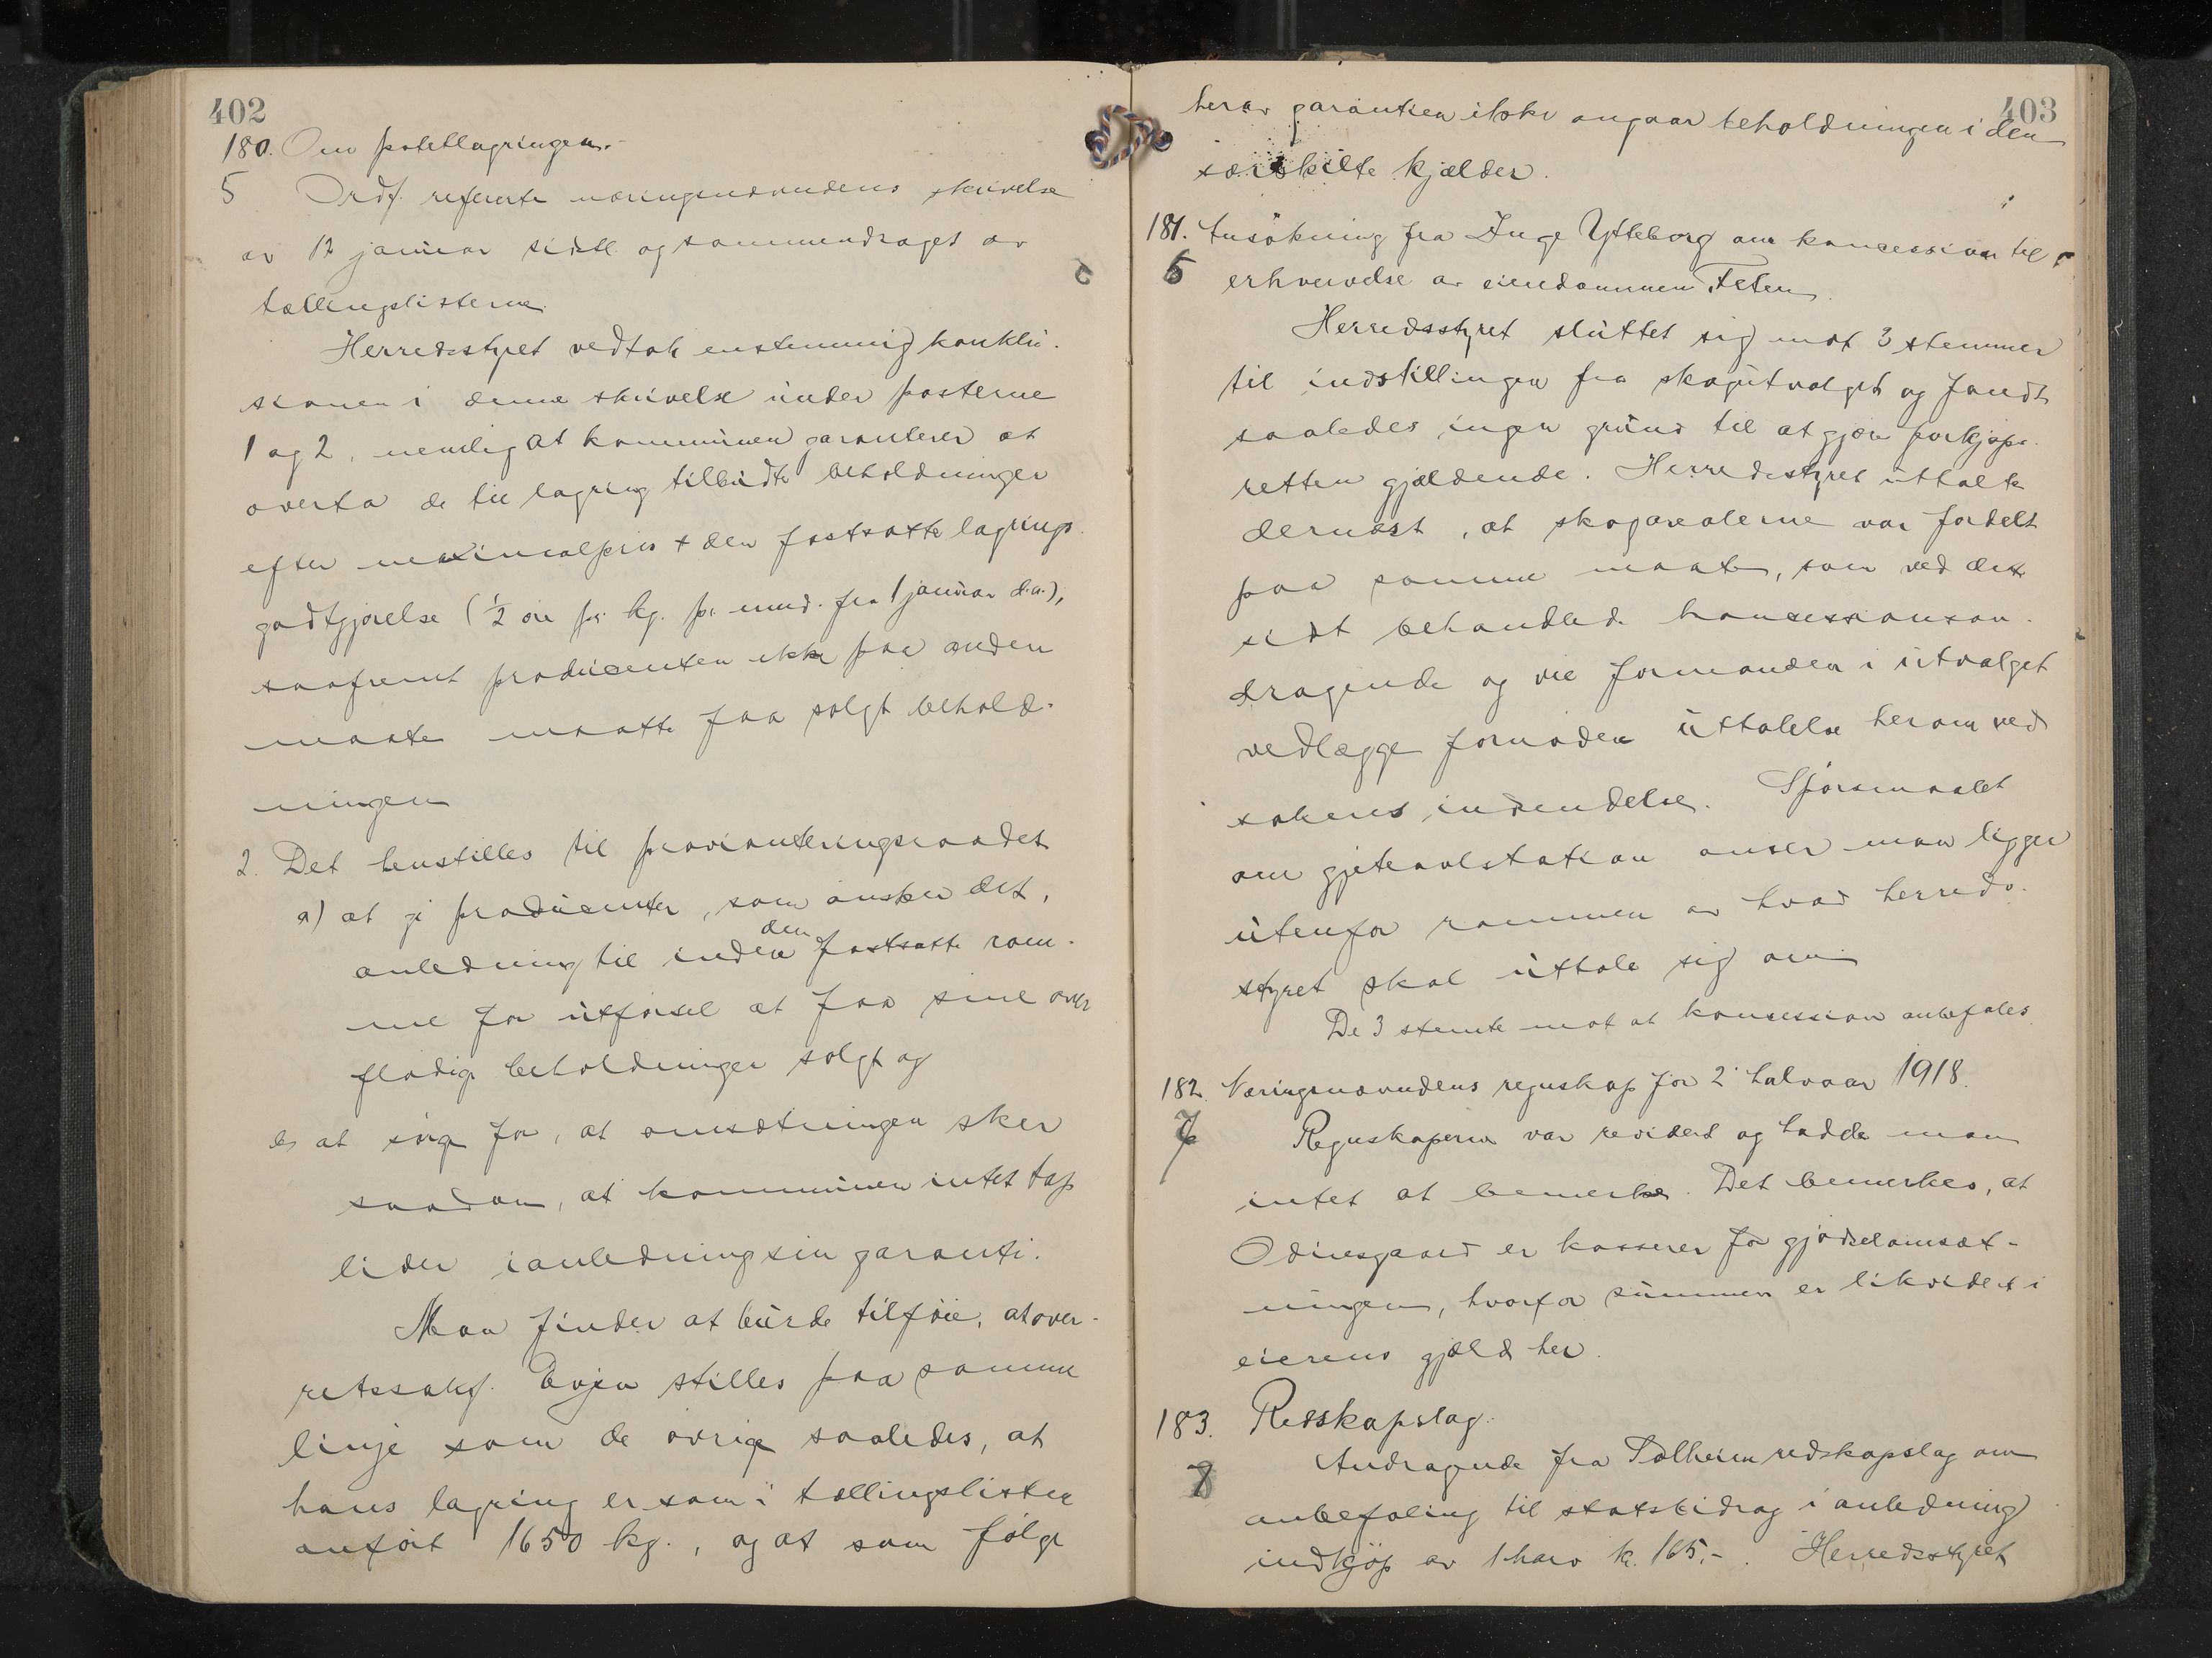 402
180. Om potetlagringen.
5 Ordf. refererte næringsnævndens skrivelse
av 12 januar sidstl. og sammendraget av
tællingslisterne.
Herredsstyret vedtok enstemmig konklu-
sionen i denne skrivelse under posterne
1 og 2, nemlig at kommunen garanterer at
overta de til lagring tilbudte beholdninger
efter maximalpris + den fastsatte lagrings-
godtgjørelse (½ øre pr. kg. pr. mnd. fra 1 januar d.a.),
saafremt producenten ikke paa anden
maate maatte faa solgt behold-
ningen
2. Det henstilles til provianteringsraadet
a) at gi producenter, som ønsker det,
anledning til inden den fastsatte ram-
me for utførsel at faa sine over
flødige beholdninger solgt og
b) at sørge for, at omsætningen sker
saadan, at kommunen intet tap
lider i anledning sin garanti.
Man finder at burde tilføie, at over-
retssakf. Evjen stilles paa samme
linje som de øvrige saaledes, at
hans lagring er som i tællingslisten
anført 1650 kg., og at som følge
403
herav garantien ikke angaar beholdningen i den
særskilte kjælder.
181. Ansøkning fra Inge Ytteborg om koncession til
5 erhvervelse av eiendommen Feten.
Herredsstyret sluttet sig mot 3 stemmer
til indstillingen fra skogutvalget og fandt
saaledes ingen grund til at gjøre forkjøps-
retten gjældende. Herredsstyret uttalte
dernæst, at skogarealerne var fordelt
paa samme maate, som ved det
sidst behandlede koncessionsan-
dragende og vil formanden i utvalget
vedlægge fornøden uttalelse herom ved
sakens indsendelse. Spørsmaalet
om gjeteavlstation anser man ligger
utenfor rammen av hvad herreds-
styret skal uttale sig om
De 3 stemte mot at koncession anbefales.
182. Næringsnævndens regnskap for 2' halvaar 1918.
7 Regnskaperne var revidert og hadde man
intet at bemerke. Det bemerkes, at
Odinsgaard er kasserer for gjødselomsæt-
ningen, hvorfor summen er likvidert i
eierens gjæld her.
183. Redskapslag.
7 Andragende fra Solheim redskapslag om
anbefaling til statsbidrag i anledning
indkjøp av 1 harv k. 165,-. Herredsstyret